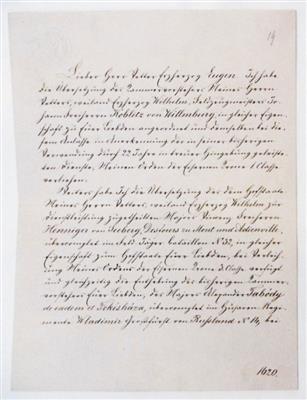 19
Lieber Herr Vetter Erzherzog Eugen Ich habe
die Übersetzung des Kammervorstehers Meines Herrn
Vetters, weiland Erzherzog Wilhelm, Feldzeugmeisters Jo-
hann Freiherrn Koblitz von Willenburg, in gleicher Eigen-
schaft zu Euer Liebden angeordnet und demselben bei die-
sem Anlasse in Anerkennung der in seiner bisherigen
Verwendung durch 22 Jahre in treuer Hingebung geleiste-
ten Dienste, Meinen Orden der Eisernen Krone 1. Classe
verliehen.
Weiters habe Ich die Übersetzung des dem Hofstaate
Meines Herrn Vetters, weiland Erzherzog Wilhelm zur
Dienstleistung zugetheilten Majors Vincenz Freiherrn
Henniger von Seeberg, und
übercomplet im Feld Jäger Bataillon N. 32, in gleicher
Eigenschaft zum Hofstaate Euer Liebden, bei Verleih-
ung Meines Ordens der Eisernen Krone 3. Classe verfügt
und gleichzeitig die Enthebung des bisherigen Kammer-
vorstehers Euer Liebden, des Majors Alexander
übercomplet im Husaren Regi-
mente Wladimir Grossfürst von Russland N. 14, bei
1620.